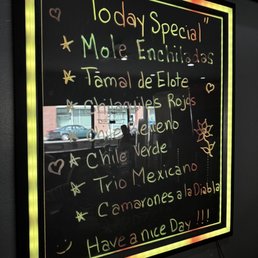 Today Special"
Mole Enchiladas
Tamal de Elote
Chilaquiles Rojos
Chile Relleno
Chile Verde
Trio Mexicano
Camarones a la Diabla
Have a nice Day !!!